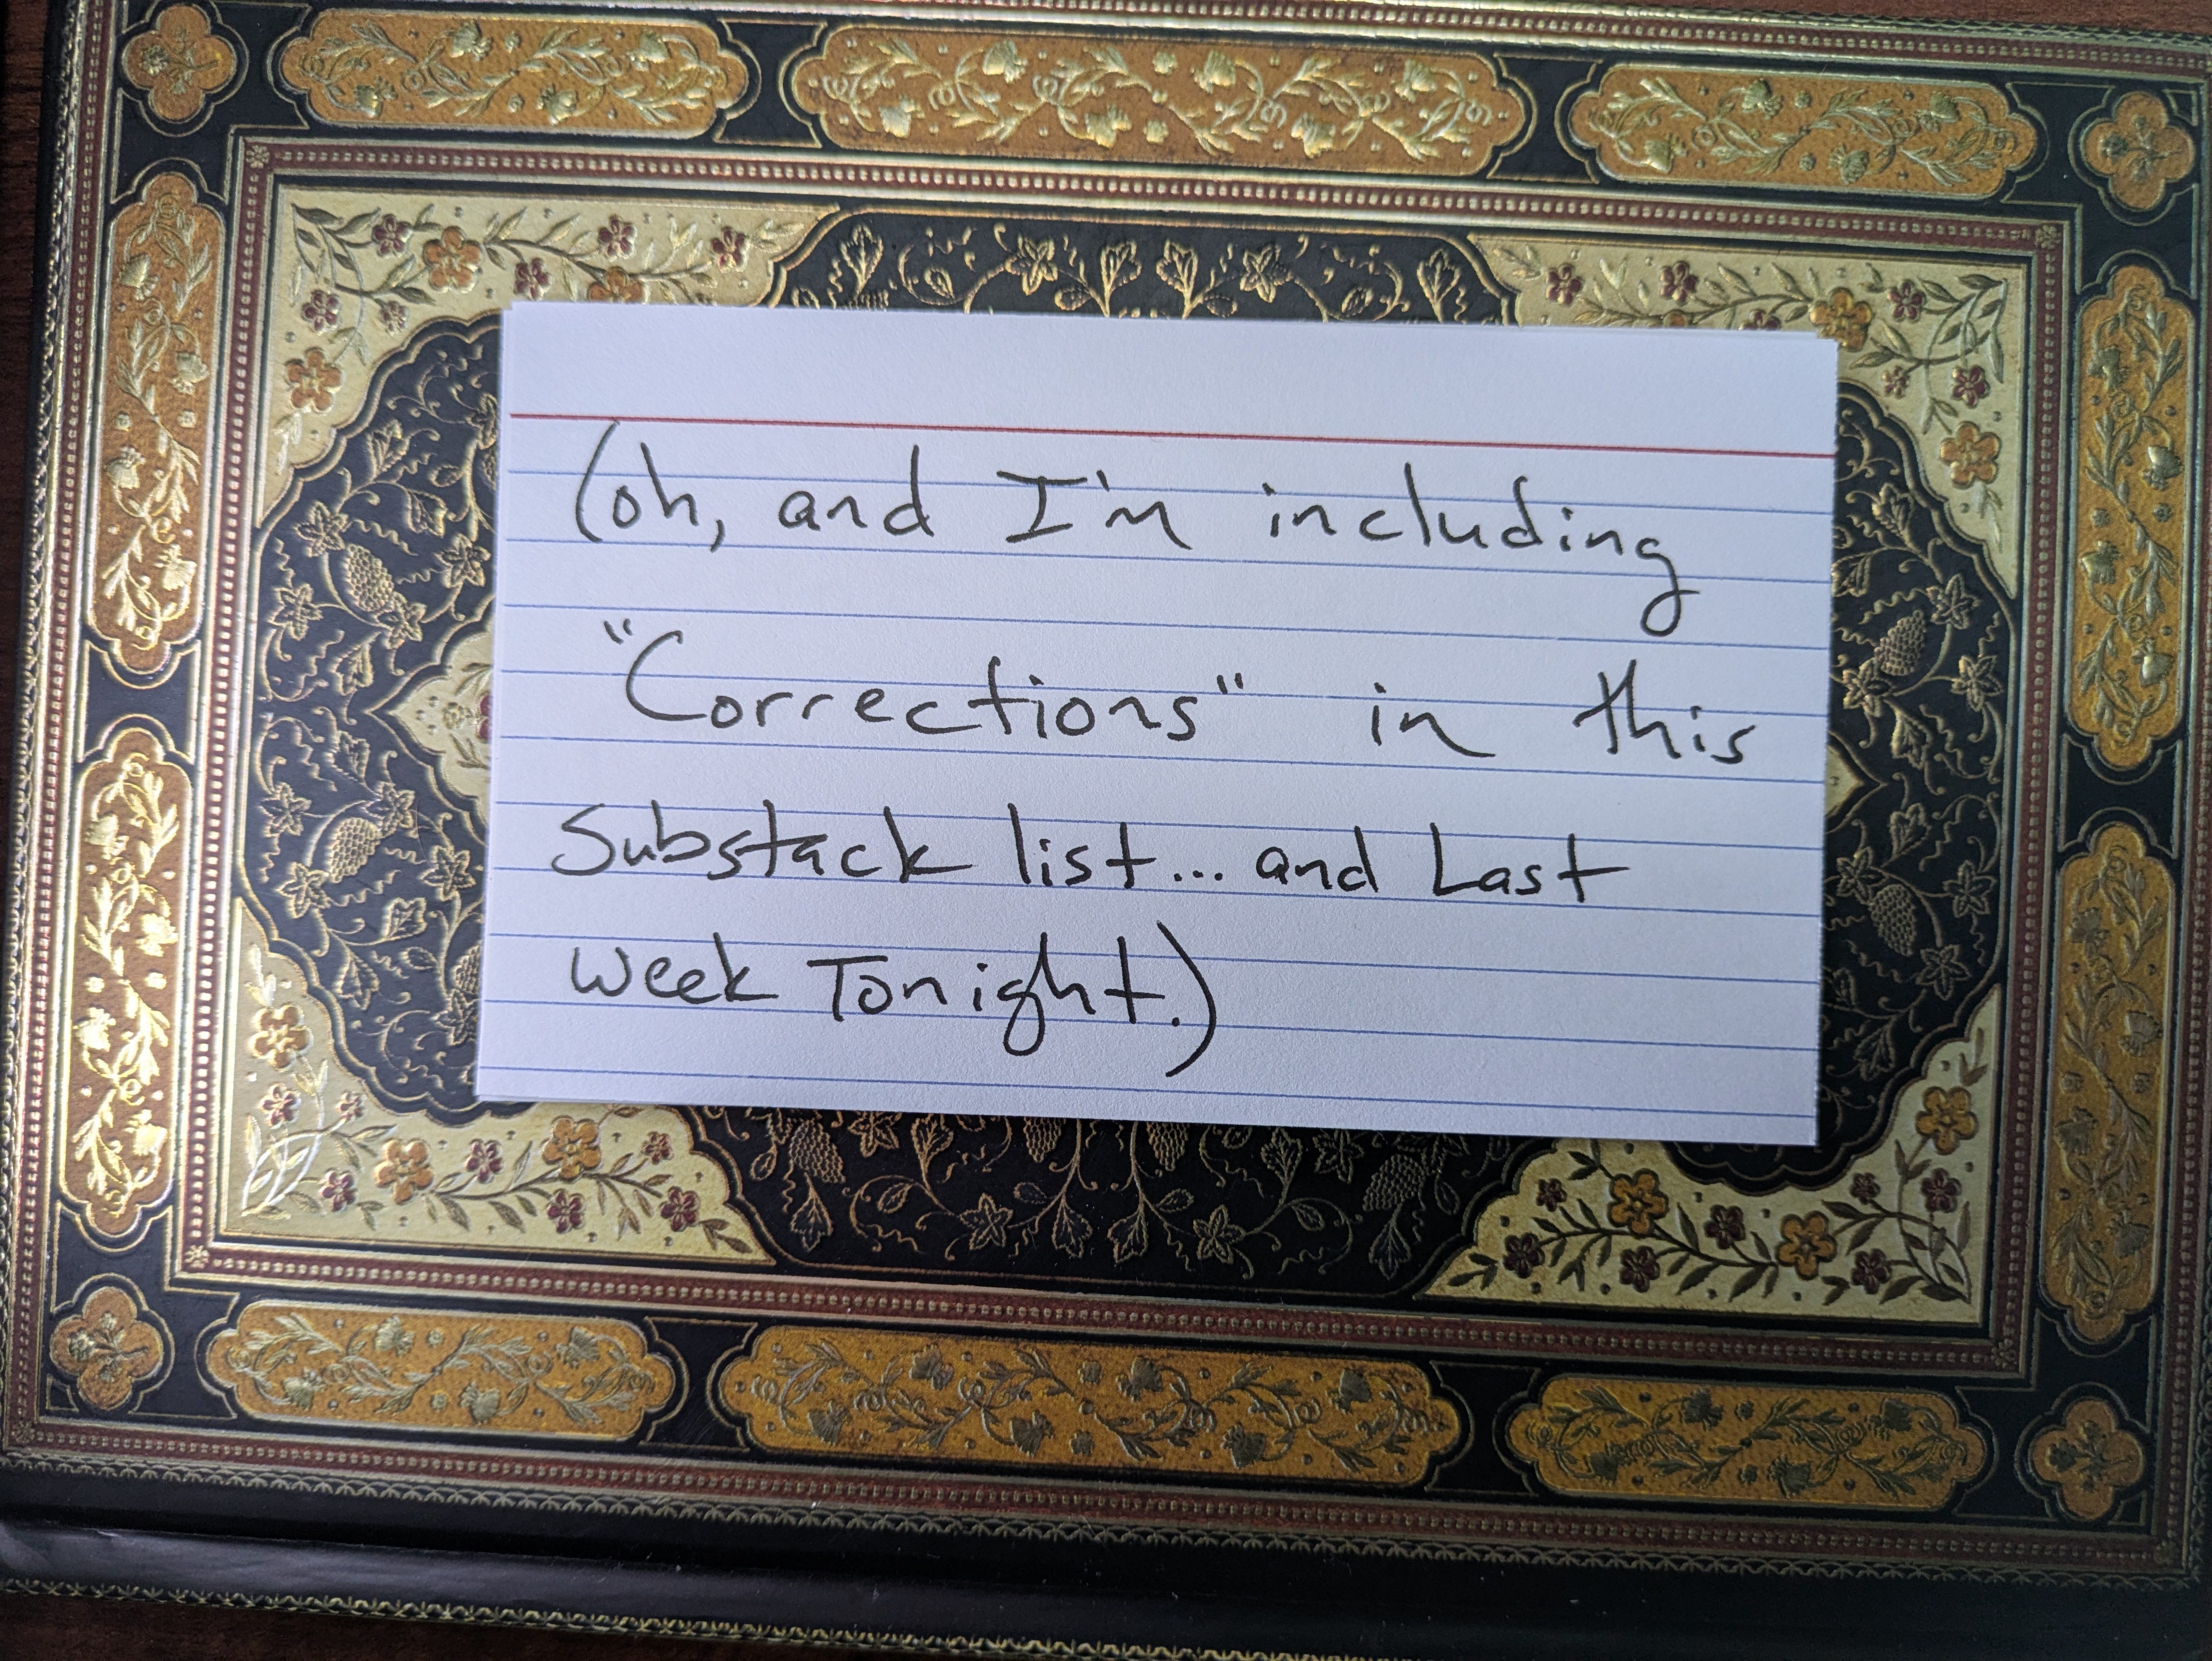 (oh, and I'm including
"Corrections" in this
Substack list... and Last
Week Tonight.)